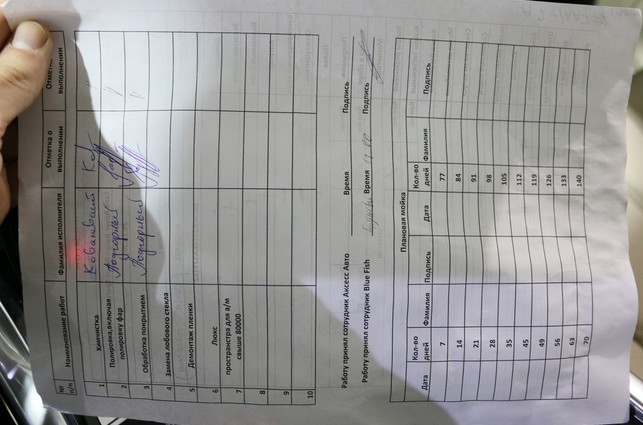 № п/п Наименование работ Фамилия исполнителя Отметка о выполнении Отметка выполнении
1 Химчистка
2 Полировка,включая полировку фар Подгорный
3 Обработка покрытием Подгорный
4 Замена лобового стекла
5 Демонтаж пленки
6 Люкс
7 пространства для а/м свыше 80000
8
9
10
Работу принял сотрудник Аксесс Авто Время Подпись
Работу принял сотрудник Blue Fish Время Подпись
Плановая мойка
Дата Кол-во дней Фамилия Подпись Дата Кол-во дней Фамилия Подпись
7 77
14 84
21 91
28 98
35 105
45 112
49 119
56 126
63 133
70 140